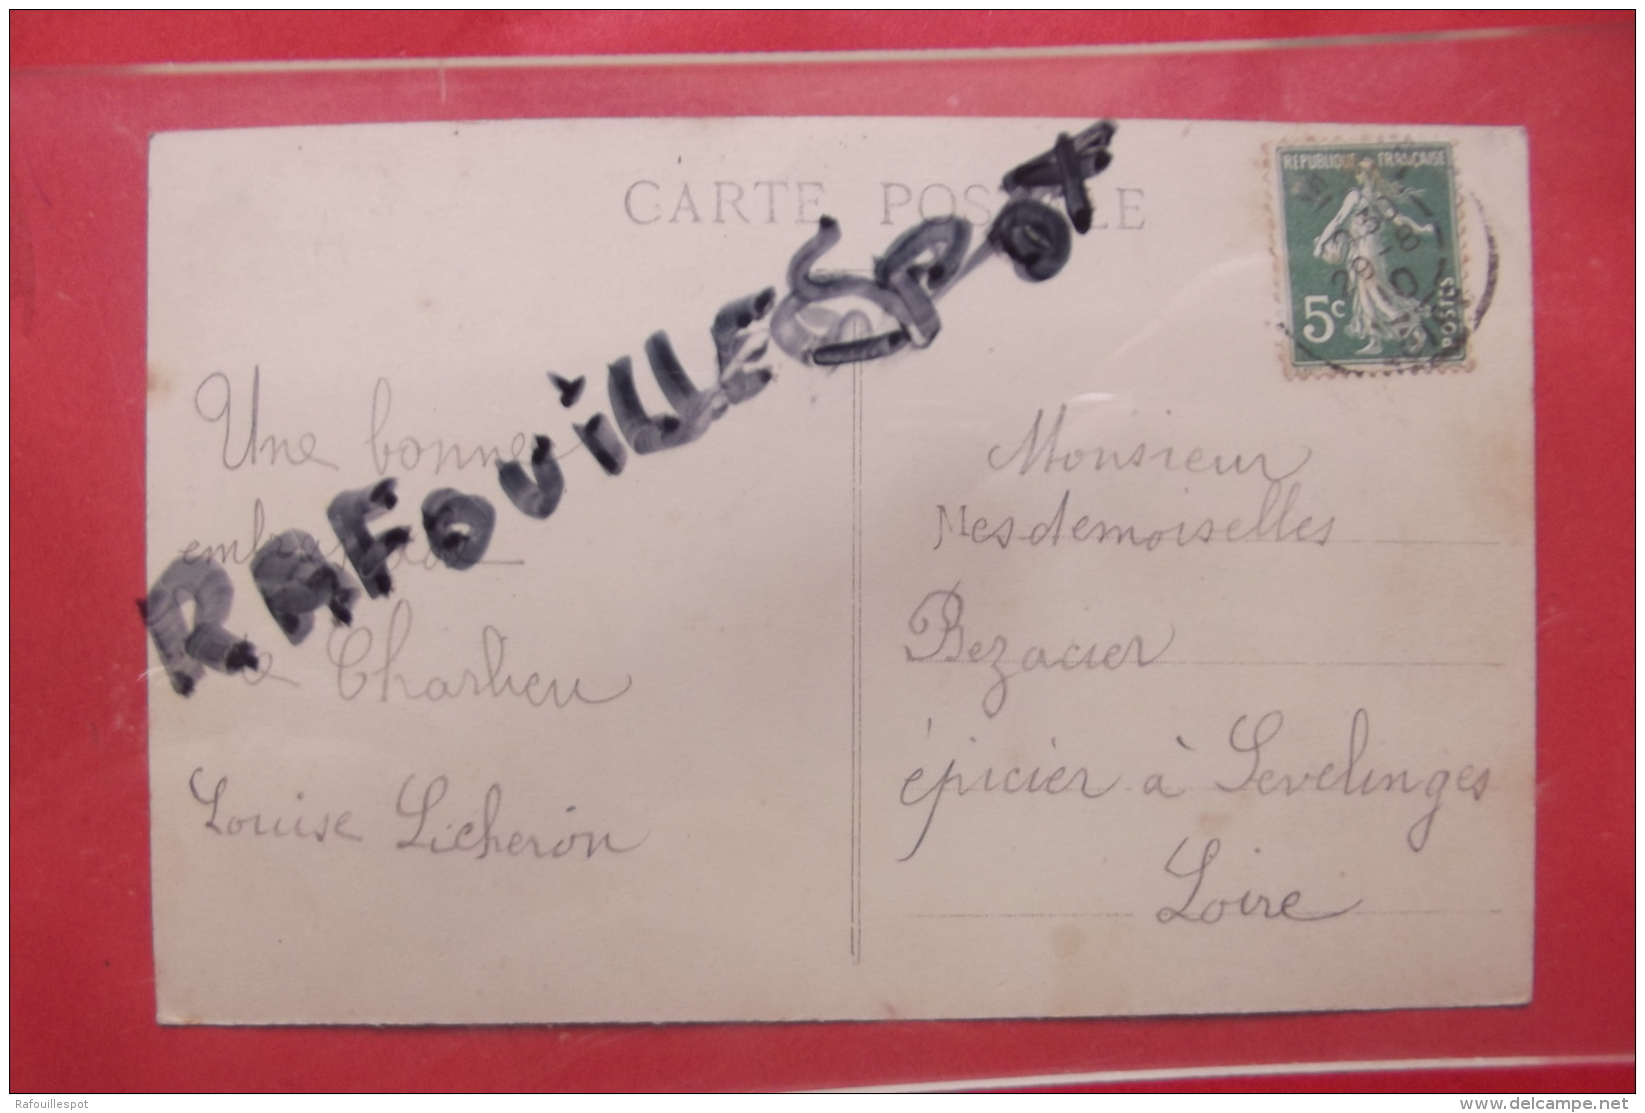 CARTE POSTALE
REPUBLIQUE FRANCAISE
5c
POSTES
RAFOUILLESPOT
Une bonne
embrassade
de Charlieu
Louise Licheron
Monsieur
Mesdemoiselles
Bezacier
épicier à Sevelinges
Loire
Rafouillespot
delcampe.net